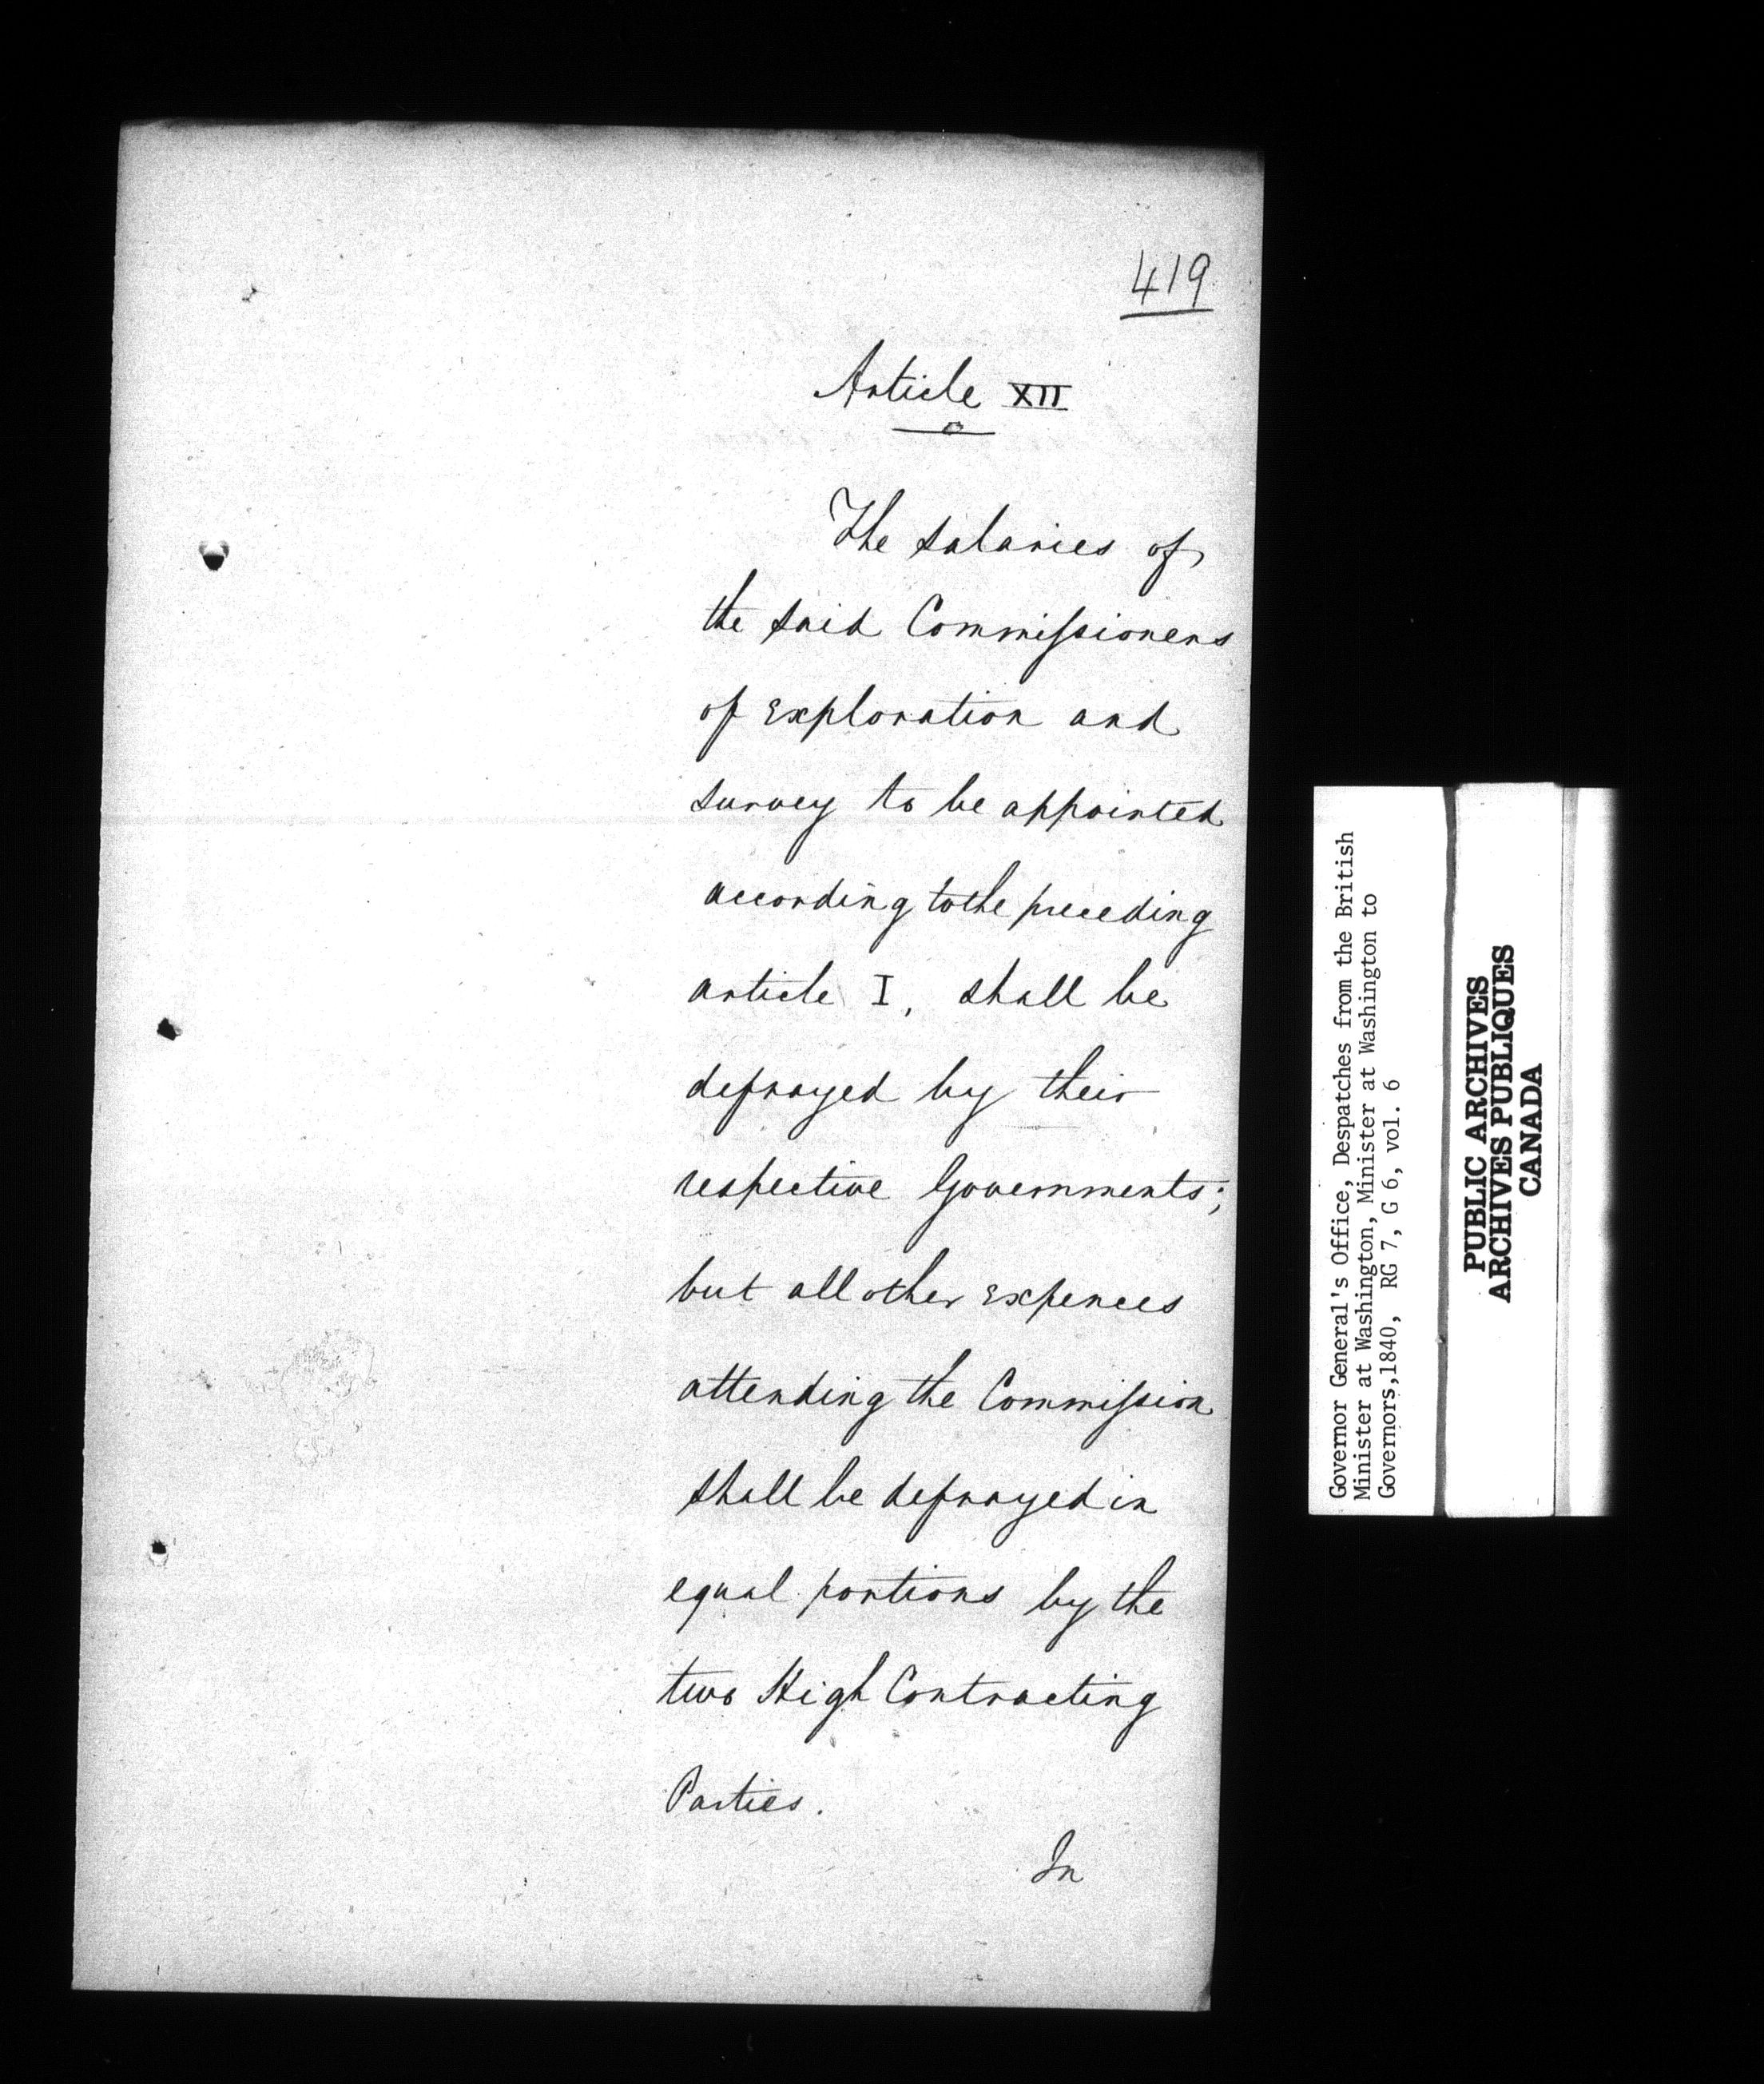 419
Article XII
The salaries of
the said Commissioners
of exploration and
survey to be appointed
according to the preceding
article I, shall be
defrayed by their
respective Governments;
but all other expences
attending the Commission
shall be defrayed in
equal portions by the
two High Contracting
Parties.
In
Governor General's Office, Despatches from the British
Minister at Washington, Minister at Washington to
Governors,1840, RG 7, G 6, vol. 6
PUBLIC ARCHIVES
ARCHIVES PUBLIQUES
CANADA